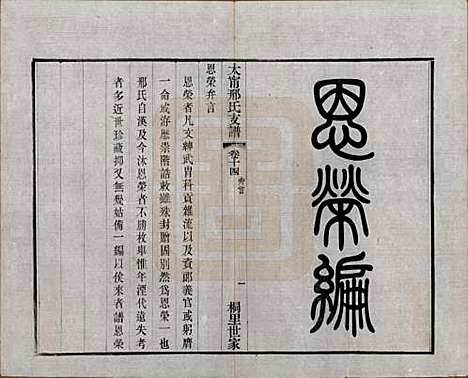 恩榮編
太甯邢氏支譜
卷十四
弁言
一
桐里世家
恩榮弁言
恩榮者凡文紳武冑科貢雜流以及賓郎義官或躬膺
一命或洊歷崇階誥敕雖殊封贈固別然為恩榮一也
邢氏自漢及今沐恩榮者不勝枚舉惟年湮代遠失考
者多近世珍藏抑又無幾姑備一編以俟來者譜恩榮